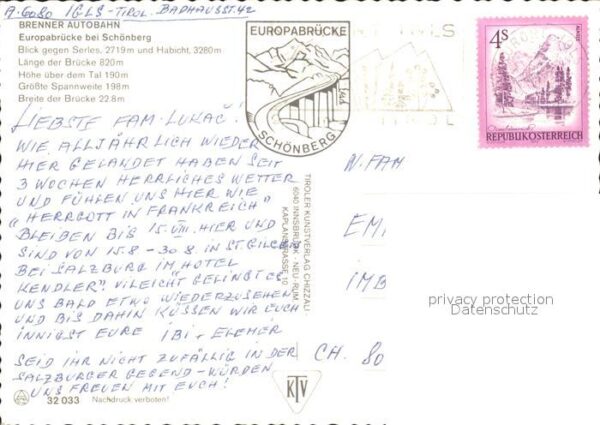 A-6080 IGLS-TIROL. BADHAUSSTR. 42
BRENNER AUTOBAHN
Europabrücke bei Schönberg
Blick gegen Serles, 2719 m und Habicht, 3280 m
Länge der Brücke 820 m
Höhe über dem Tal 190 m
Größte Spannweite 198 m
Breite der Brücke 22.8 m
LIEBSTE FAM. LUKAČ!
WIE ALLJÄHRLICH WIEDER
HIER GELANDET HABEN SEIT
3 WOCHEN HERRLICHES WETTER
UND FÜHLEN UNS HIER WIE
"HERRGOTT IN FRANKREICH"
BLEIBEN BIS 15.VIII. HIER UND
SIND VON 15.8 - 30.8 IN ST. GILGEN
BEI SALZBURG IM HOTEL
KENDLER". VILEICHT GELINGT ES
UNS BALD ETWO WIEDERZUSEHEN
UND BIS DAHIN KÜSSEN WIR EUCH
INNIGST EURE IBI + ELEMER
SEID IHR NICHT ZUFÄLLIG IN DER
SALZBURGER GEGEND - WÜRDEN
UNS FREUEN MIT EUCH!
32 033 Nachdruck verboten!
EUROPABRÜCKE
SCHÖNBERG
IGLS
TIROL
4S
REPUBLIK ÖSTERREICH
TIROLER KUNSTVERLAG CHIZZALI
6040 INNSBRUCK - NEU-RUM
KAPLANSTRASSE 10
KTV
FAM
EMI
IMB
CH. 80
privacy protection
Datenschutz